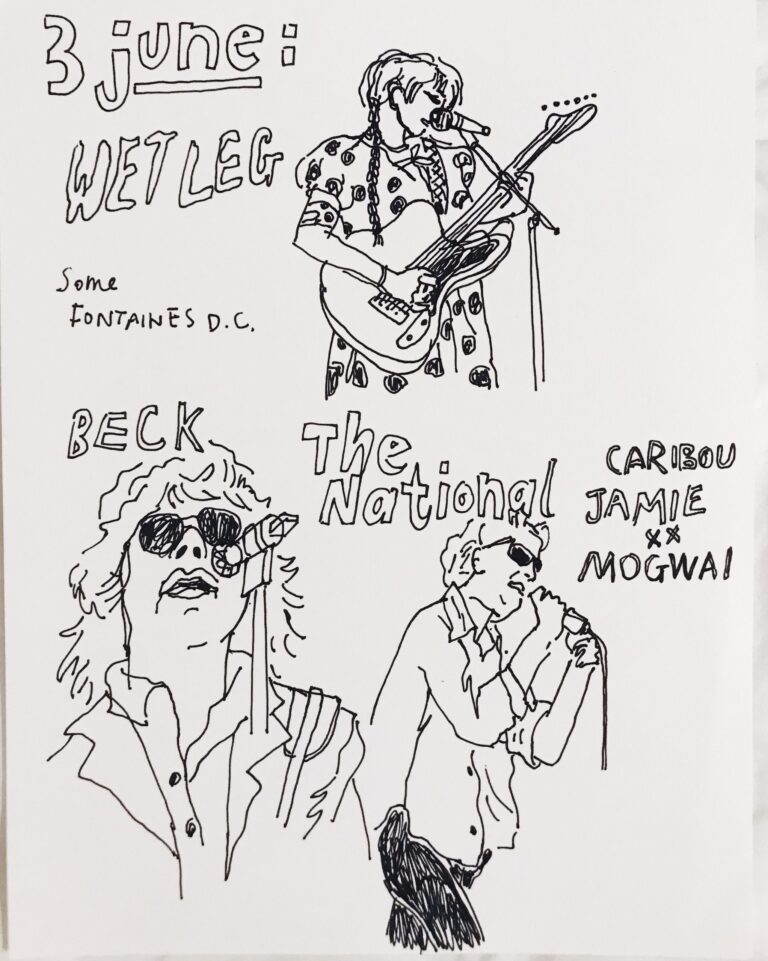 3 june:
WET LEG
Some
FONTAINES D.C.
BECK
The
National
CARIBOU
JAMIE
xx
MOGWAI